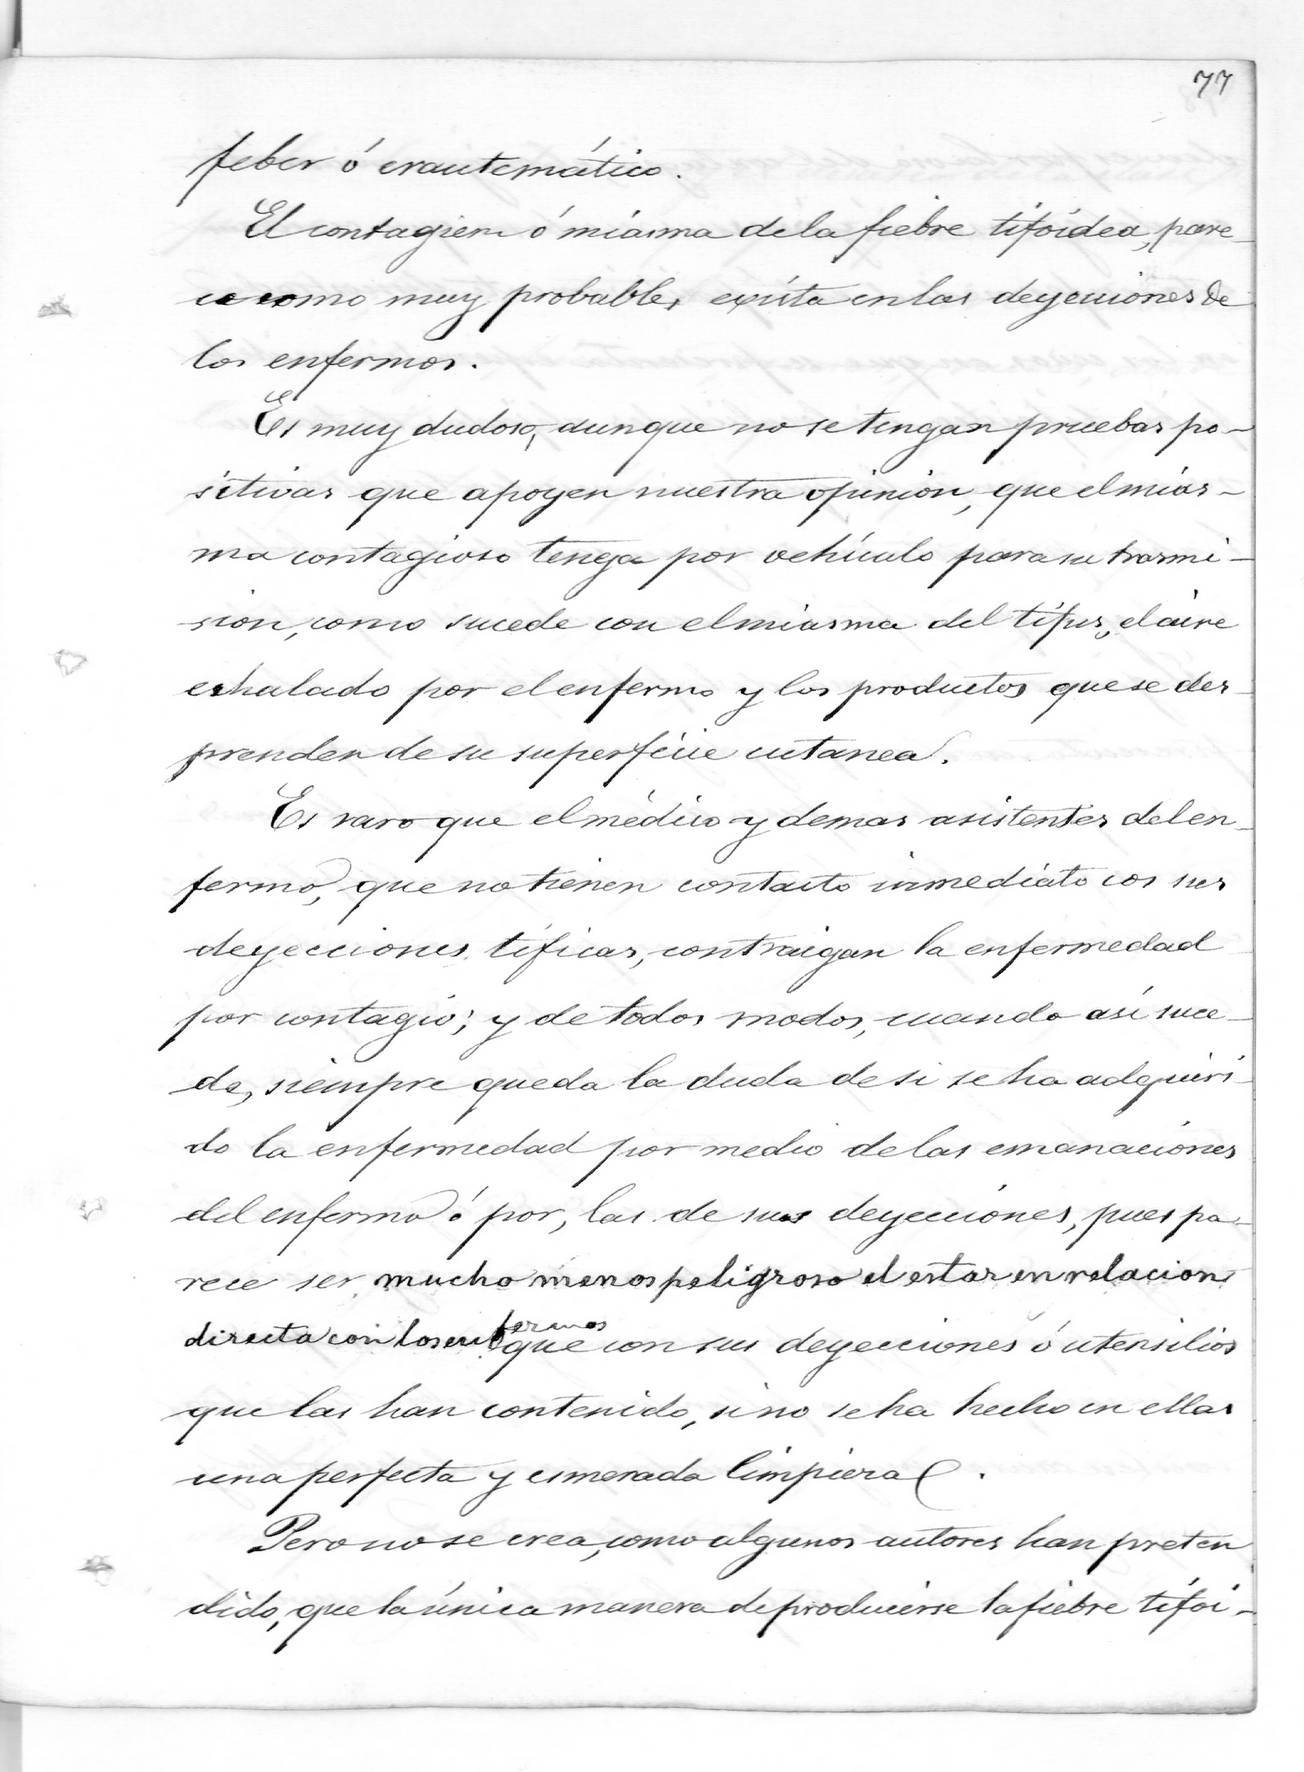 77
feber ó exantemático.
El contagien ó miasma de la fiebre tifóidea, pare-
ce como muy probable, exista en las deyecciones de
los enfermos.
Es muy dudoso, aunque no se tengan pruebas po-
sitivas que apoyen nuestra opinion, que el mias-
ma contagioso tenga por vehículo para su trasmi-
sion, como sucede con el miasma del tífus, el aire
exhalado por el enfermo y los productos que se des-
prenden de su superfície cutanea.
Es raro que el médico y demas asistentes del en-
fermo, que no tienen contacto inmediato con sus
deyecciones tíficas, contraigan la enfermedad
por contagio; y de todos modos, cuando así suce-
de, siempre queda la duda de si se ha adquiri-
do la enfermedad por medio de las emanaciones
del enfermo ó por, las de sus deyecciones, pues pa-
rece ser mucho menos peligroso el estar en relacion
directa con los enfermos que con sus deyecciones ó utensilios
que las han contenido, si no se ha hecho en ellas
una perfecta y esmerada limpieza.
Pero no se crea, como algunos autores han preten
dido, que la única manera de producirse la fiebre tifoi-